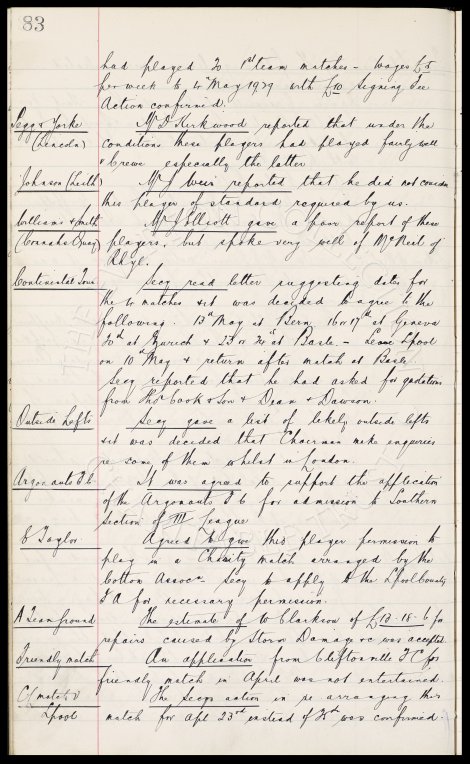 83
had played 20 1st team matches - wages £5
per week to 4 May 1929 with £10 Signing Fee
Action confirmed.
Pegg & Yorke Mr D Kirkwood reported that under the
(Lincoln) conditions these players had played fairly well
& Crewe especially the latter
Johnson (Leith) Mr J Weir reported that he did not consider
this player of standard required by us.
Williams & Smith Mr J Elliott gave a poor report of these
(Connahs Quay) players, but spoke very well of McNeil of
Rhyl.
Continental Tour Secy read letter suggesting dates for
the 4 matches & it was decided to agree to the
following. 13th May at Bern, 16 or 17th at Geneva
20th at Zurich & 23 or at Basle - Leave Lpool
on 10th May & return after match at Basle
Secy reported that he had asked for quotations
from Thos Cook & Son & Dean & Dawson.
Outside Lefts Secy gave a list of likely outside lefts
& it was decided that Chairman make enquiries
re some of them whilst in London.
Argonauts F.C. It was agreed to support the application
of the Argonauts F C for admission to Southern
Section of III League
C Taylor Agreed to give this player permission to
play in a Charity match arranged by the
Cotton Assocn. Secy to apply to the Lpool County
F A for necessary permission.
A Team ground The estimate of W Clarkson of £13-18-6 for
repairs caused by Storm Damage &c was accepted
Friendly match An application from Cliftonville F C for
friendly match in April was not entertained.
C/ match v The Secys action in re arranging this
Lpool match for Apl 23rd instead of was confirmed